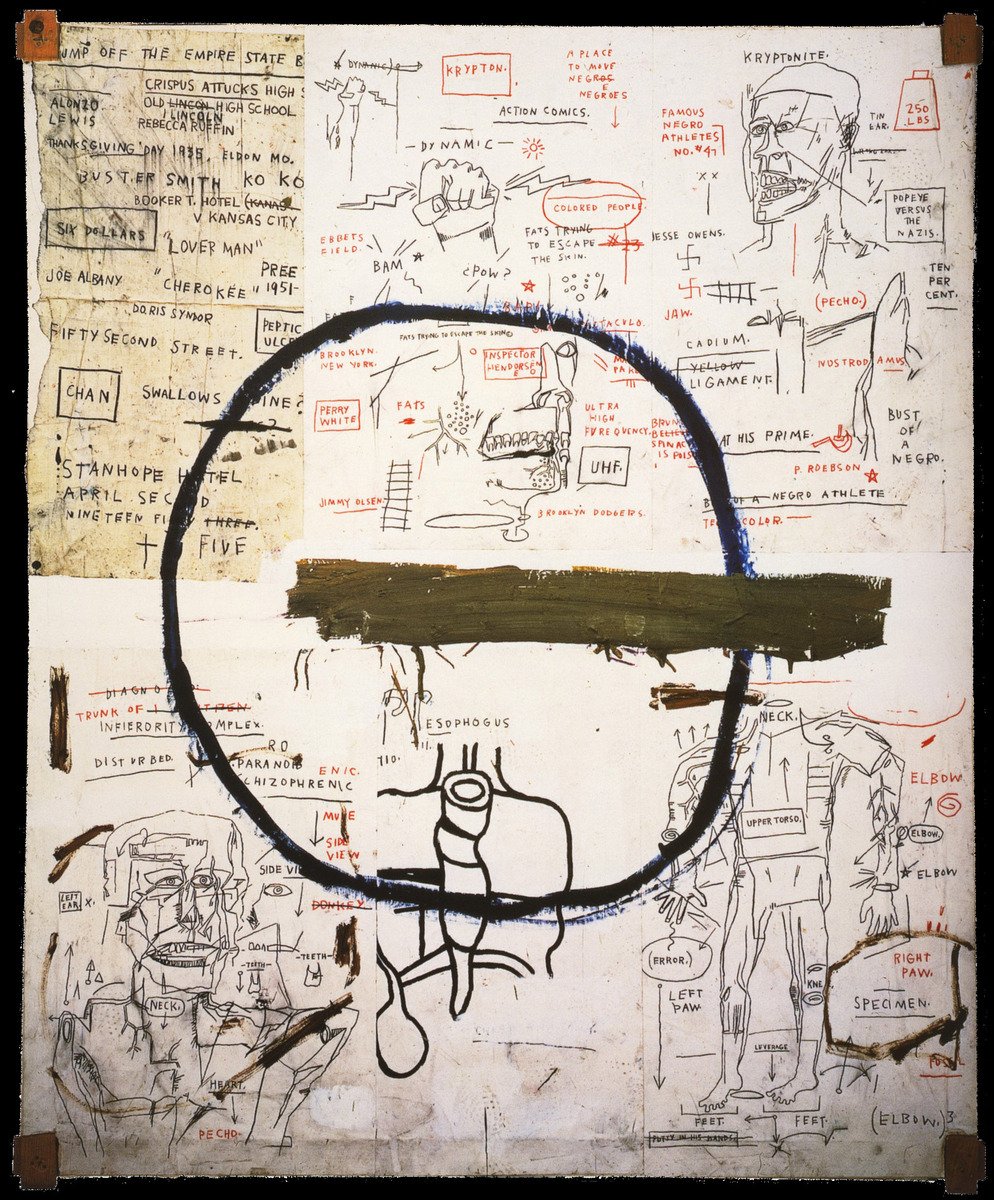 JUMP OFF THE EMPIRE STATE B
CRISPUS ATTUCKS HIGH S
ALONZO
LEWIS
OLD LINCON HIGH SCHOOL
LINCOLN
REBECCA RUFFIN
THANKSGIVING DAY 1935, ELDON MO.
BUSTER SMITH KO KO
BOOKER T. HOTEL (KANAS
V KANSAS CITY
SIX DOLLARS
"LOVER MAN"
JOE ALBANY
"CHEROKEE"
PREE
1951-
DORIS SYDNOR
FIFTY SECOND STREET.
PEPTIC
ULCE
CHAN
SWALLOWS
INE?
STANHOPE HOTEL
APRIL SECOND
NINETEEN FIFTY THREE.
FIVE
DYNAMIC)
KRYPTON.
A PLACE
TO MOVE
NEGROS
E
NEGROES
ACTION COMICS.
—DYNAMIC—
COLORED PEOPLE
FATS TRYING
TO ESCAPE #23
THE SKIN.
EBBETS
FIELD.
BAM
¿POW?
TACULO.
FATS TRYING TO ESCAPE THE SKIN©
BROOKLYN.
NEW YORK.
INSPECTOR
HENDORSEN
PERRY
WHITE
FATS
ULTRA
HIGH
FUREQUENCY.
UHF.
JIMMY OLSEN
BROOKLYN DODGERS.
KRYPTONITE.
FAMOUS
NEGRO
ATHLETES
NO.#47
TIN
EAR.
250
LBS
XX
JESSE OWENS.
POPEYE
VERSUS
THE
NAZIS.
TEN
PER
CENT.
(PECHO.)
JAW.
CADIUM.
YELLOW
LIGAMENT.
NOSTRODAMUS
BUST
OF
A
NEGRO.
BRUN
BELIE
SPINAC
IS POIS
AT HIS PRIME.
P. ROEBSON
B OF A NEGRO ATHLETE
TECHCOLOR.—
DIAGNO
TRUNK OF
INFIERORITY COMPLEX.
DISTURBED.
RO
PARANOI
SCHIZOPHRENIC
ENIC.
MULE
SIDE
VIEW
SIDE VIEW
DONKEY
LEFT
EAR
X.
—TEETH—
—TEETH—
NECK.
HEART.
PECHO
ESOPHOGUS
NECK.
UPPER TORSO.
ELBOW
ELBOW
ELBOW.
ELBOW
ERROR.
LEFT
PAW
KNE
RIGHT
PAW.
SPECIMEN.
LEVERAGE
FEET.
FEET
(ELBOW.)3
PUTTY IN HIS HANDS.